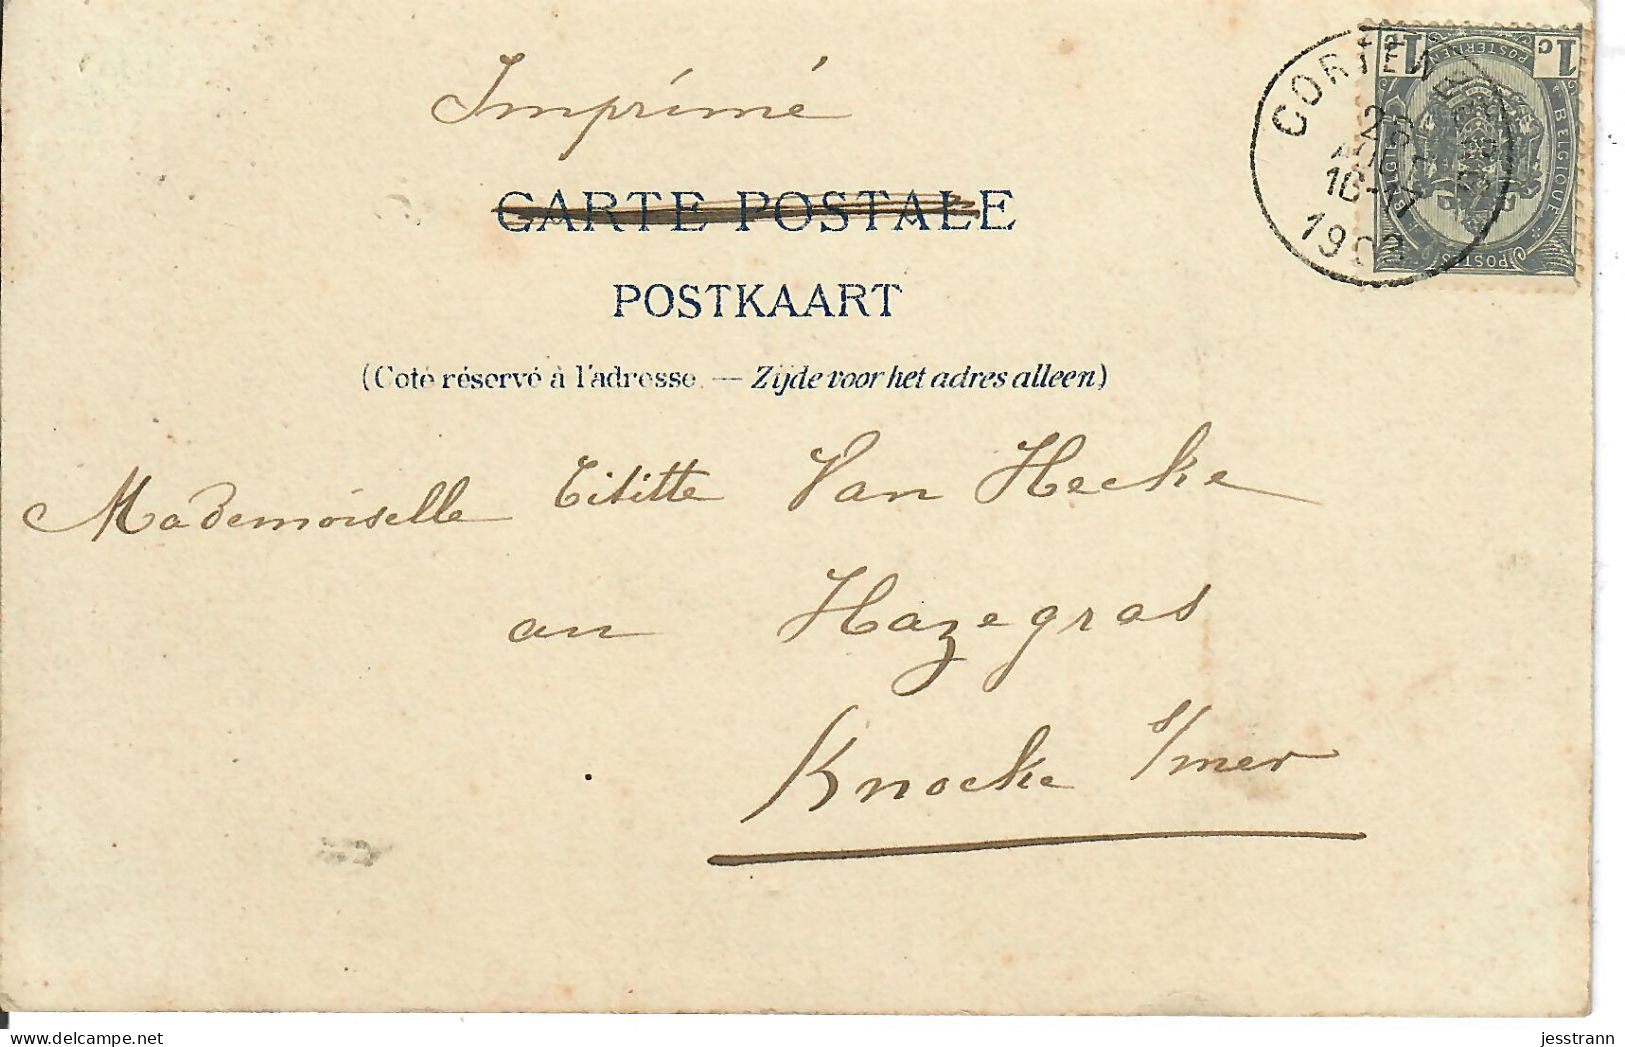 Imprimé
CARTE POSTALE
POSTKAART
(Coté réservé à l'adresse. — Zijde voor het adres alleen)
Mademoiselle Tititte Van Hecke
an Hazegras
Knocke s/mer
1c 1c
BELGIQUE
POSTERIJEN
POSTES
CORTEM
2
AOUT
10-M
190
delcampe.net
jesstrann